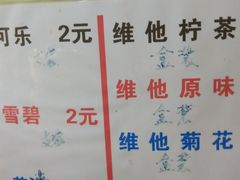 可乐 2元
维他柠茶
盒装
维他原味
盒装
雪碧 2元
维他菊花
盒装